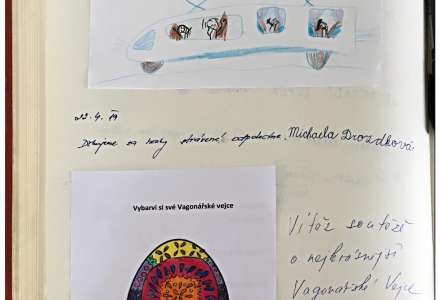 22.4.19
Děkujeme za hezky strávené odpoledne. Michaela Drozdková
Vybarvi si své Vagonářské vejce
Vítěz soutěže
o nejkrásnější
Vagonářské Vejce